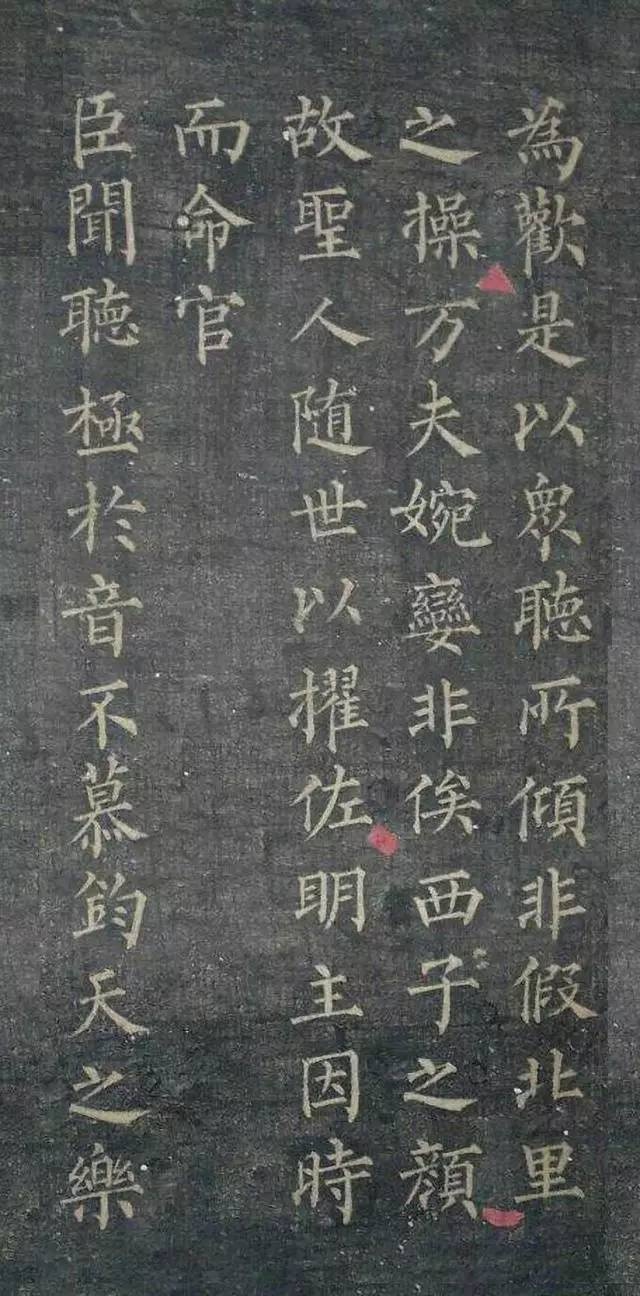 為歡是以眾聴所傾非假北里
之操万夫婉孌非俟西子之顔
故聖人随世以擢佐眀主因時
而命官
臣聞聴極於音不慕鈞天之樂